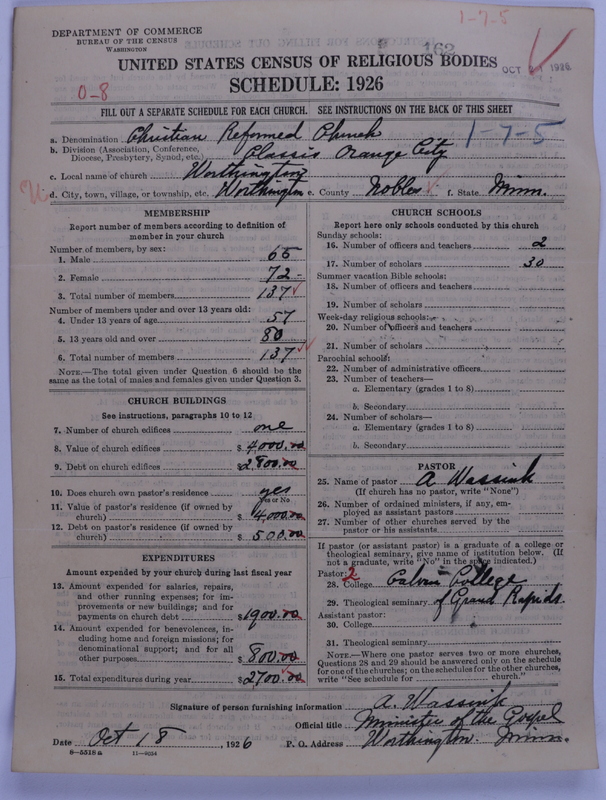 1-7-5
DEPARTMENT OF COMMERCE
BUREAU OF THE CENSUS
WASHINGTON
162
UNITED STATES CENSUS OF RELIGIOUS BODIES
OCT 21 1926
SCHEDULE: 1926
0-8
FILL OUT A SEPARATE SCHEDULE FOR EACH CHURCH. SEE INSTRUCTIONS ON THE BACK OF THIS SHEET
a. Denomination Christian Reformed Church 1-7-5
b. Division (Association, Conference, Diocese, Presbytery, Synod, etc.) Classis Orange City
c. Local name of church Worthington
d. City, town, village, or township, etc. Worthington e. County Nobles f. State Minn.
MEMBERSHIP
Report number of members according to definition of
member in your church
Number of members, by sex:
1. Male 65
2. Female 72
3. Total number of members 137
Number of members under and over 13 years old:
4. Under 13 years of age 57
5. 13 years old and over 80
6. Total number of members 137
NOTE.—The total given under Question 6 should be
same as the total of males and females given under Question 3.
CHURCH BUILDINGS
See instructions, paragraphs 10 to 12
7. Number of church edifices one
8. Value of church edifices $ 4000.00
9. Debt on church edifices $2800.00
10. Does church own pastor's residence yes
Yes or No
11. Value of pastor's residence (if owned by
church) $ 4000.00
12. Debt on pastor's residence (if owned by
church) $ 500.00
EXPENDITURES
Amount expended by your church during last fiscal year
13. Amount expended for salaries, repairs,
and other running expenses; for im-
provements or new buildings; and for
payments on church debt $1900.00
14. Amount expended for benevolences, in-
cluding home and foreign missions; for
denominational support; and for all
other purposes $ 800.00
15. Total expenditures during year $2700.00
CHURCH SCHOOLS
Report here only schools conducted by this church
Sunday schools:
16. Number of officers and teachers 2
17. Number of scholars 30
Summer vacation Bible schools:
18. Number of officers and teachers
19. Number of scholars
Week-day religious schools:
20. Number of officers and teachers
21. Number of scholars
Parochial schools:
22. Number of administrative officers
23. Number of teachers—
a. Elementary (grades 1 to 8)
b. Secondary
24. Number of scholars—
a. Elementary (grades 1 to 8)
b. Secondary
PASTOR
25. Name of pastor A Wassink
(If church has no pastor, write "None")
26. Number of ordained ministers, if any, em-
ployed as assistant pastors
27. Number of other churches served by the
pastor or his assistants
If pastor (or assistant pastor) is a graduate of a college or
theological seminary, give name of institution below. (If
not a graduate, write "No" in the space indicated.)
Pastor: 2
28. College Calvin College
29. Theological seminary of Grand Rapids.
Assistant pastor:
30. College
31. Theological seminary
NOTE.—Where one pastor serves two or more churches,
Questions 28 and 29 should be answered only on the schedule
for one of the churches; on the schedules for the other churches,
write "See schedule for church."
Signature of person furnishing information A. Wassink
Official title Minister of the Gospel
Date Oct 18, 1926 P. O. Address Worthington. Minn.
8-5518a 11-9034